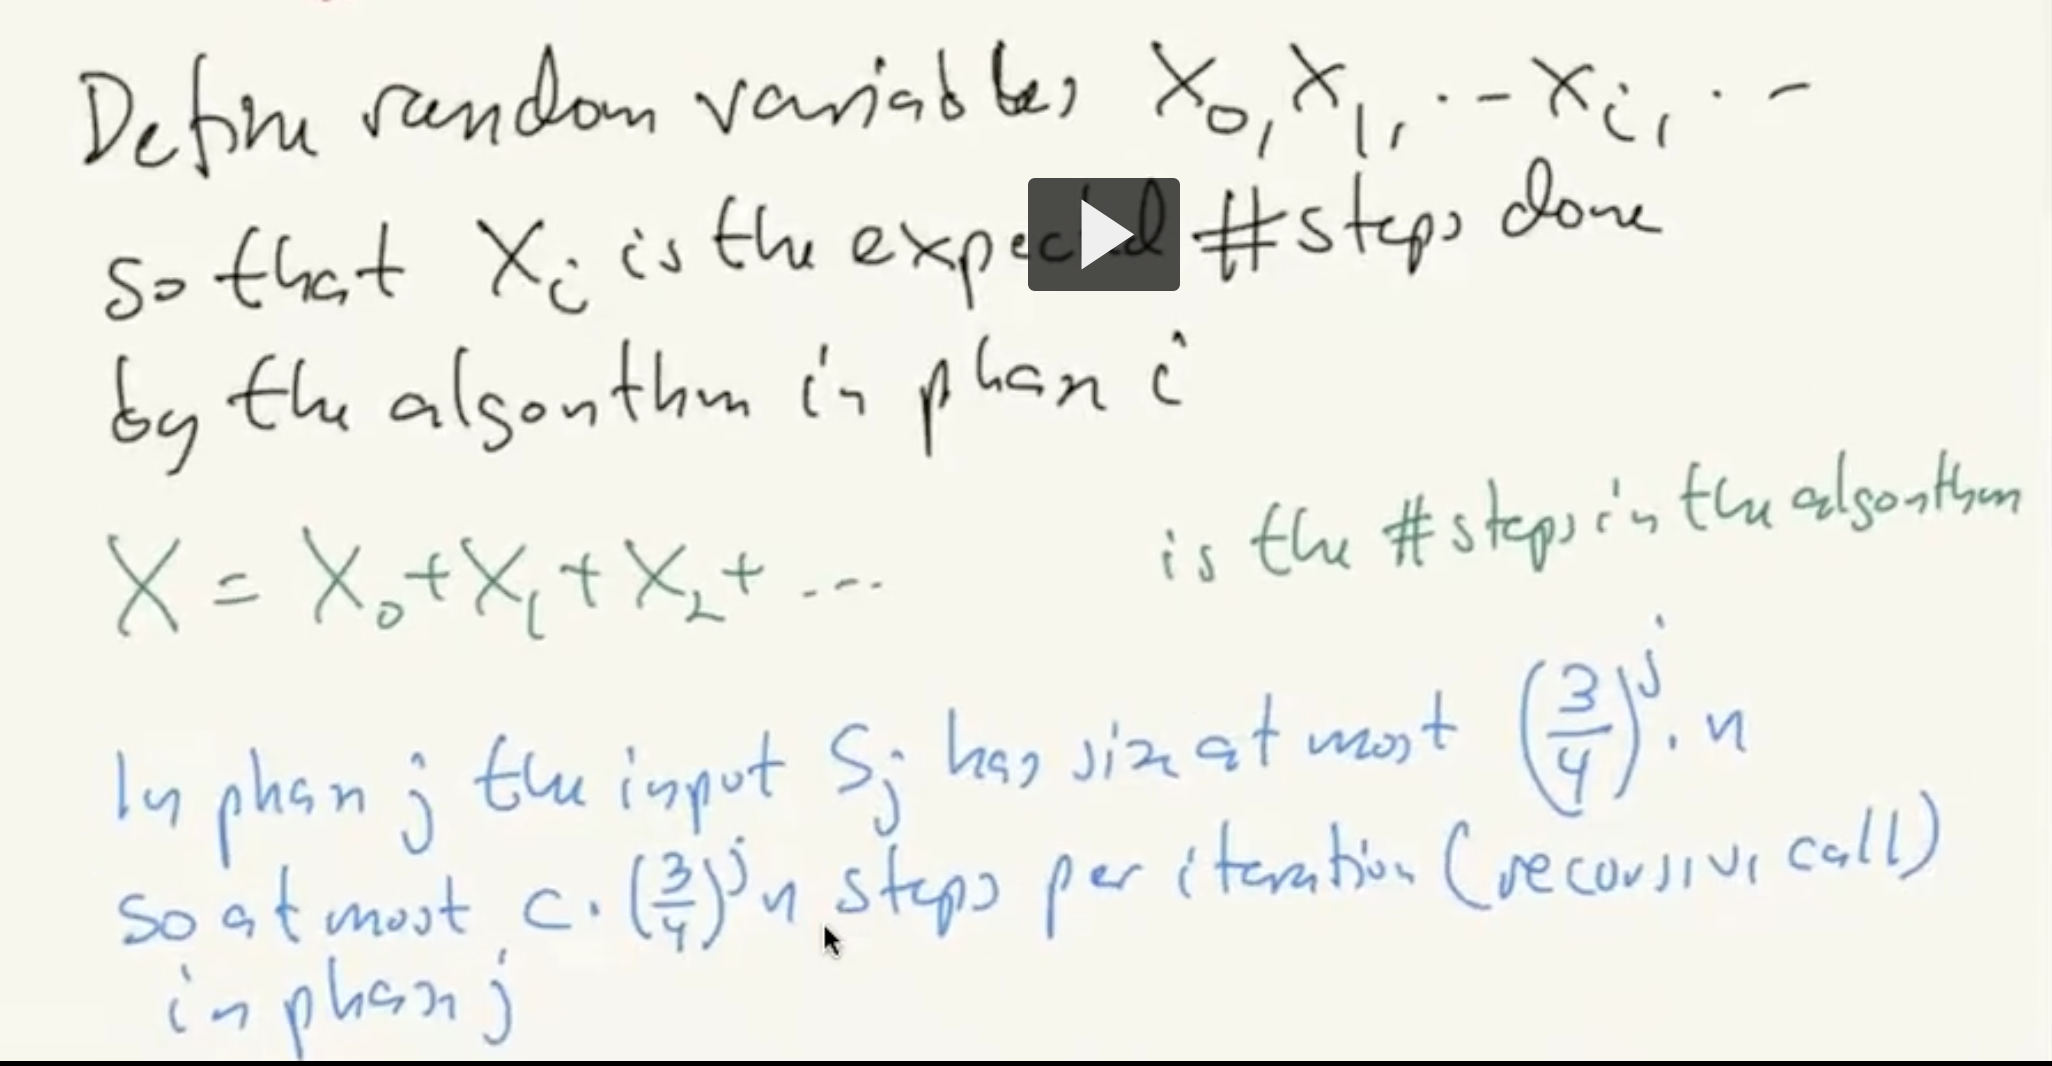 Define random variables X₀, X₁, ... Xᵢ, ...
so that Xᵢ is the expected #steps done
by the algorithm in phase i
X = X₀ + X₁ + X₂ + ... is the #steps in the algorithm
In phase j the input Sⱼ has size at most (3/4)^j · n
so at most c · (3/4)^j n steps per iteration (recursive call)
in phase j